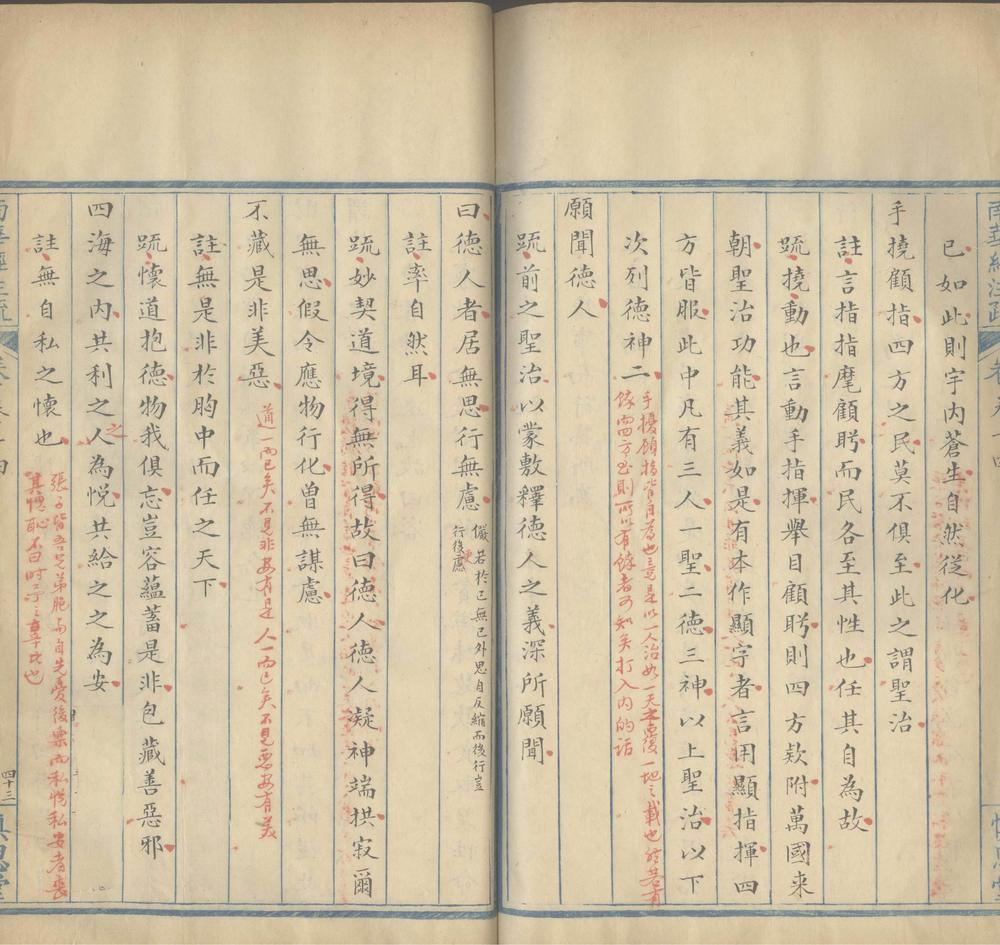 已如此則宇內蒼生自然從化
手撓顧指四方之民莫不俱至此之謂聖治
註言指指麾顧眄而民各至其性也任其自為故
䟽撓動也言動手指揮舉目顧眄則四方欵附萬國來
朝聖治功能其義如是有本作顯字者言用顯指揮四
方皆服此中凡有三人一聖二德三神以上聖治以下
次列德神二
手擾顧指皆自為也
是以一人治如一天之覆一地之載也
打入內的話
願聞德人
䟽前之聖治以蒙敷釋德人之義深所願聞
曰德人者居無思行無慮
儼若於已無已外思自反縮而後行豈
行後慮
註率自然耳
䟽妙契道境得無所得故曰德人德人凝神端拱寂爾
無思假令應物行化曾無謀慮
不藏是非美惡
道一而已矣不見非安有是人一而已矣不見惡安有美
註無是非於胷中而任之天下
䟽懷道抱德物我俱忘豈容蘊蓄是非包藏善惡邪
四海之內共利之人為悅共給之之為安
之
註無自私之懷也
張子皆吾兄弟胞與自先憂後樂而私悅私安者喪
四十三
慎思堂